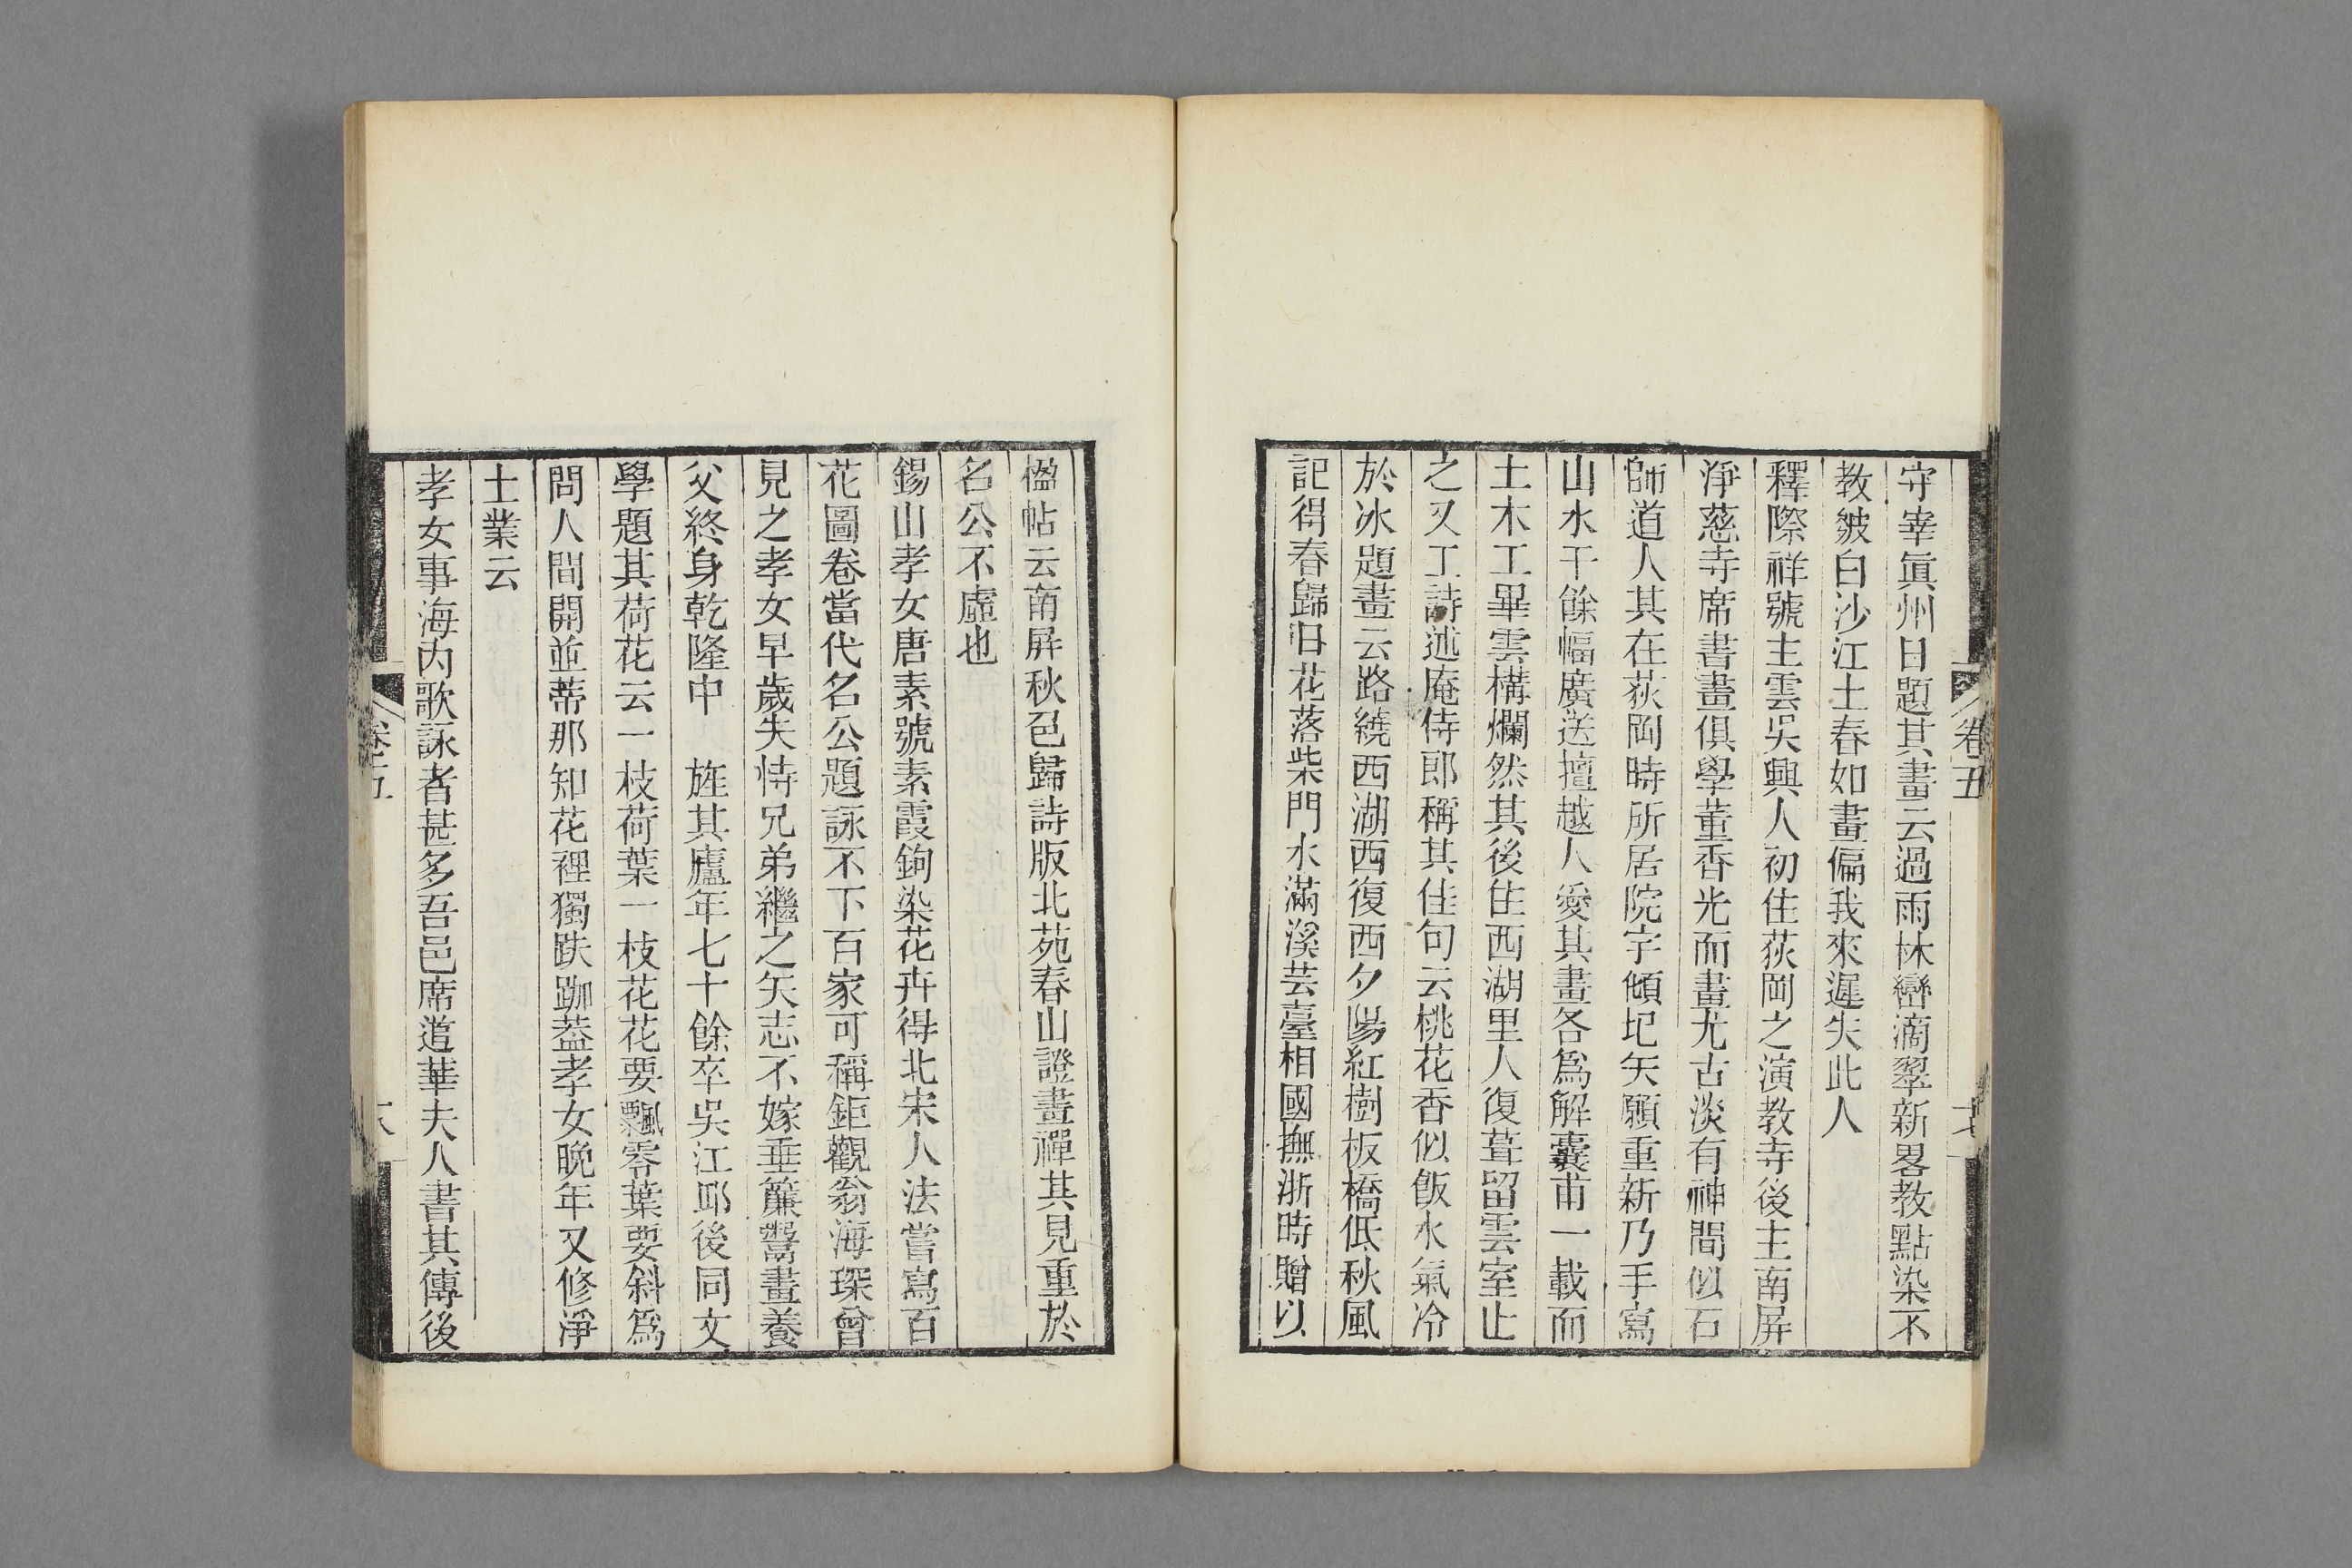 守宰眞州日題其畫云過雨林巒滴翠新畧教點染不
教皴白沙江上春如畫偏我來遲失此人
釋際祥號主雲吳興人初住荻岡之演教寺後主南屏
淨慈寺席書畫俱學董香光而畫尤古淡有神間似石
師道人其在荻岡時所居院宇傾圮矢願重新乃手寫
山水千餘幅廣送擅越人愛其畫各爲解囊甫一載而
土木工畢雲構爛然其後住西湖里人復葺留雲室止
之又工詩述庵侍郎稱其佳句云桃花香似飯水氣冷
於冰題畫云路繞西湖西復西夕陽紅樹板橋低秋風
記得春歸日花落柴門水滿溪芸臺相國撫浙時贈以
楹帖云南屏秋色歸詩版北苑春山證畫禪其見重於
名公不虛也
錫山孝女唐素號素霞鉤染花卉得北宋人法嘗寫百
花圖卷當代名公題詠不下百家可稱鉅觀翁海琛曾
見之孝女早歲失恃兄弟繼之矢志不嫁垂簾鬻畫養
父終身乾隆中　旌其廬年七十餘卒吳江邱後同文
學題其荷花云一枝荷葉一枝花花要飄零葉要斜爲
問人間開並蒂那知花裡獨趺跏葢孝女晚年又修淨
土業云
孝女事海內歌詠者甚多吾邑席道華夫人書其傳後
卷五
卷五